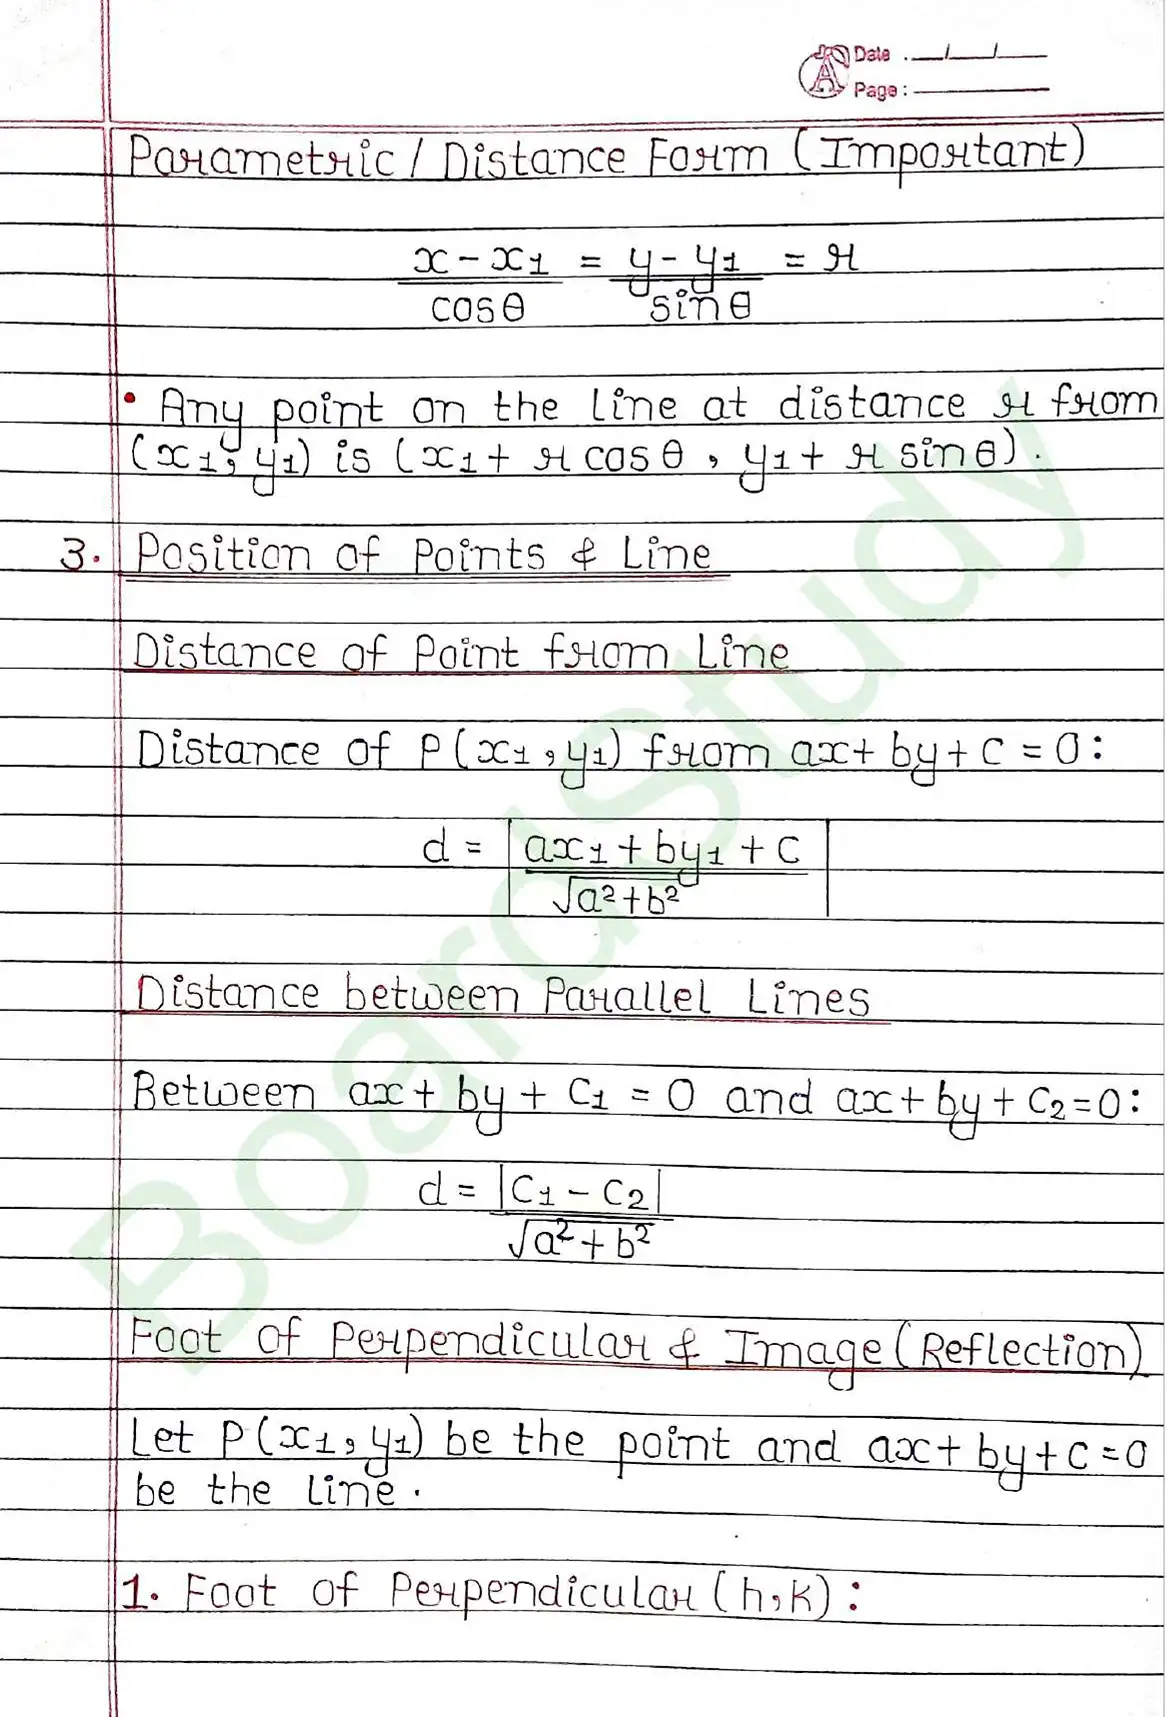 Date : __/__/__
Page :
Parametric / Distance Form (Important)
x - x1 / cosθ = y - y1 / sinθ = r
• Any point on the line at distance r from
(x1, y1) is (x1 + r cosθ, y1 + r sinθ).
3. Position of Points & Line
Distance of Point from Line
Distance of P(x1, y1) from ax + by + c = 0:
d = | ax1 + by1 + c / √a² + b² |
Distance between Parallel Lines
Between ax + by + C1 = 0 and ax + by + C2 = 0:
d = |C1 - C2| / √a² + b²
Foot of Perpendicular & Image (Reflection)
Let P(x1, y1) be the point and ax + by + c = 0
be the line.
1. Foot of Perpendicular (h, k):
BoardStudy